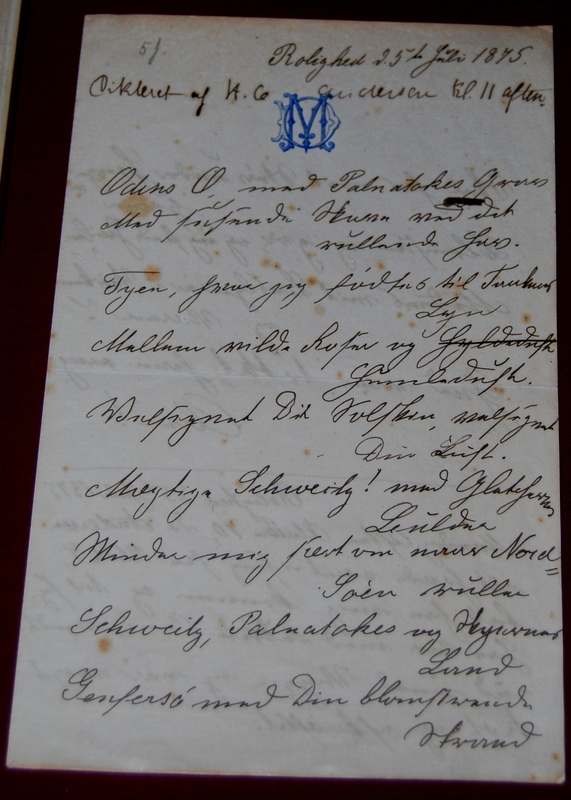 5).
Rolighed d. 5te Juli 1875.
Dikteret af H. C Andersen Kl. 11 aften.
M
Odens Ø med Palnatokes Grav
Med susende Skove ved det
rullende Hav.
Fyen, hvor jeg fødtes til Tankens
Lyn
Mellem vilde Roser og Hyldeduft
Humleduft.
Velsignet Dit Solskin, velsignet
Din Luft.
Mægtige Schweitz! med Gletschernes
Mindes mig først om naar Nord=
Søen ruller
Schweitz, Palnatokes og Skyernes
Land
Genfersö med Din blomstrende
Strand